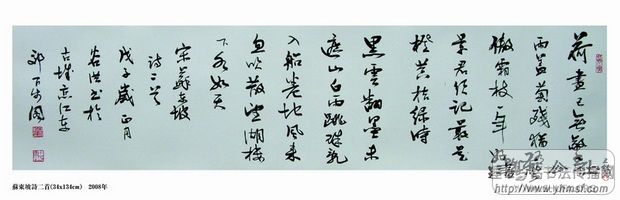 荷盡已無擎
雨蓋菊殘猶
傲霜枝一年好
景君須記最是
橙黃橘綠時
黑雲翻墨未
遮山白雨跳珠亂
入船卷地風來
忽吹散望湖樓
下水如天
宋蘇東坡
詩二首
戊子歲正月
書於
古城
蘇東坡詩二首(34x134cm) 2008年
http://www.yhmsf.com